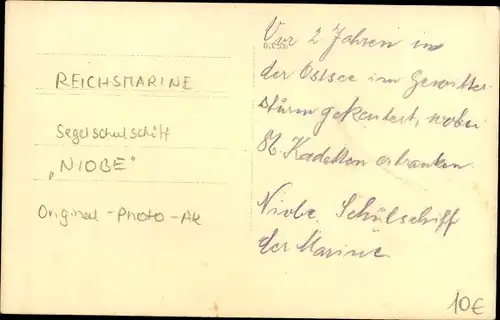 REICHSMARINE
Segelschulschiff
„NIOBE"
Original-Photo-AK
Vor 2 Jahren in
der Ostsee im Gewitter-
sturm gekentert, wobei
86. Kadetten ertranken.
Niobe. Schulschiff
der Marine.
10€